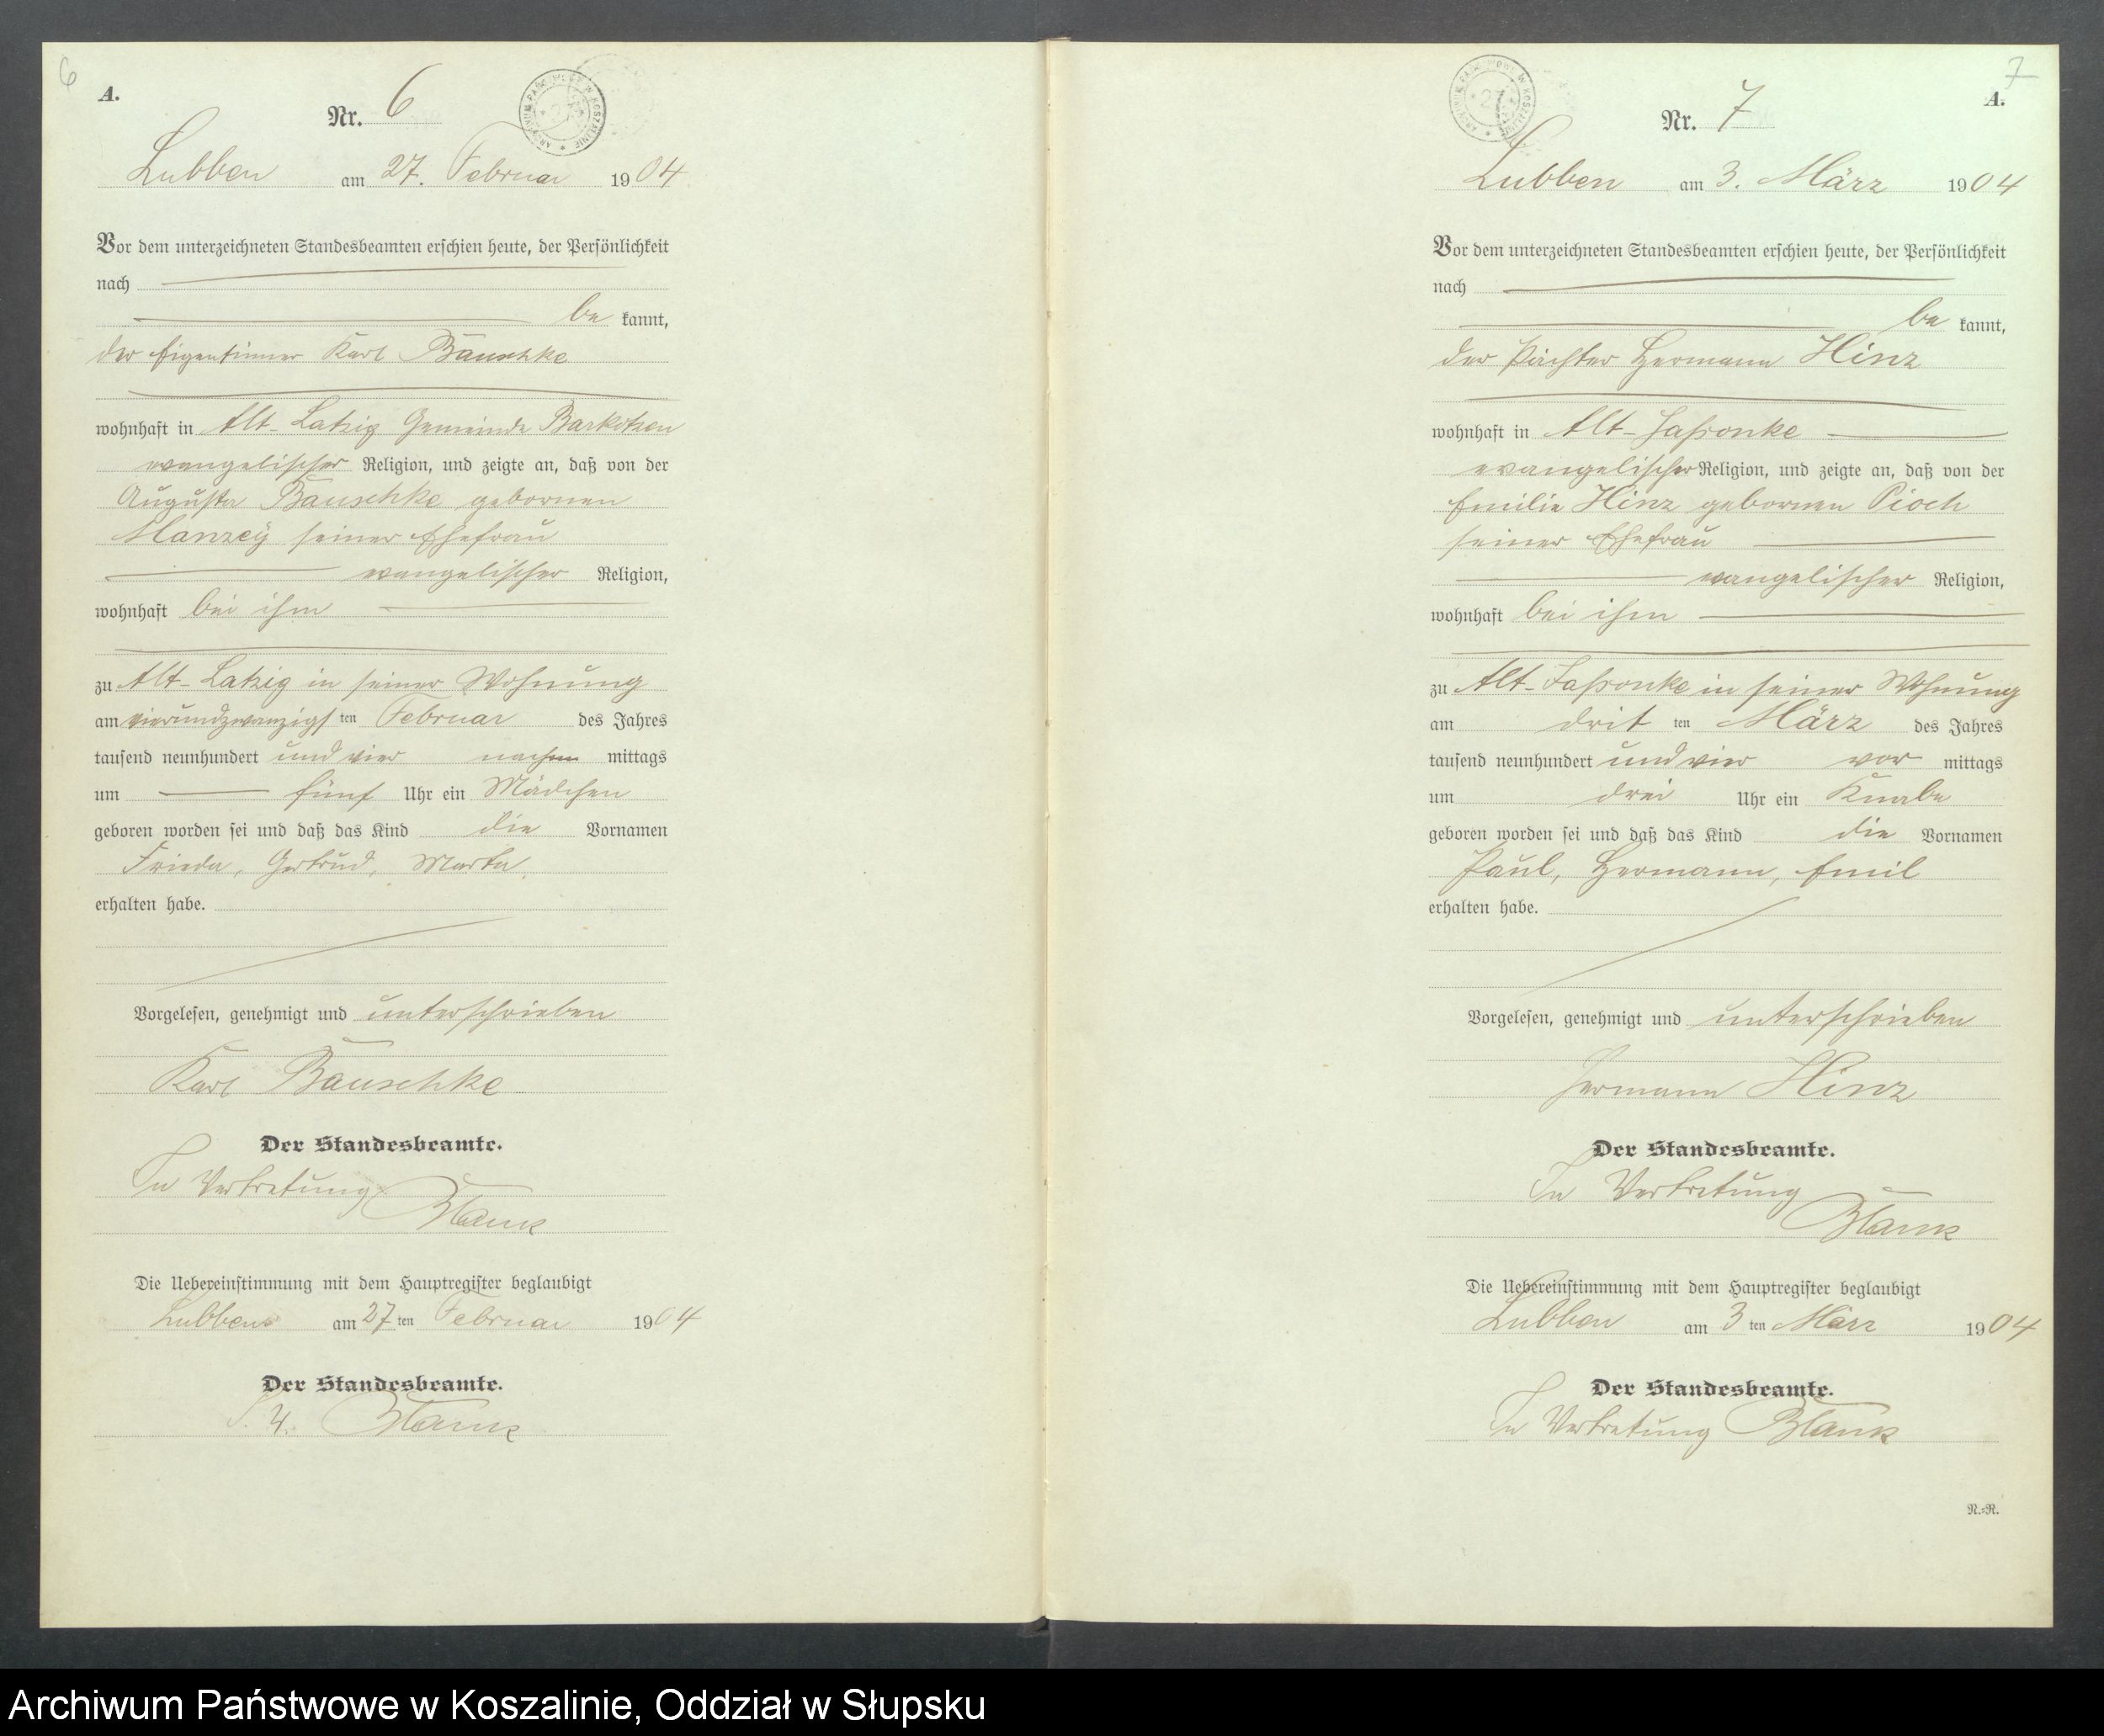 6
A.
Nr. 6
Lubben am 27. Februar 1904
Vor dem unterzeichneten Standesbeamten erschien heute, der Persönlichkeit
nach
be kannt,
der Eigentümer Karl Bauschke
wohnhaft in Alt-Latzig Gemeinde Barkotzen
evangelischer Religion, und zeigte an, daß von der
Auguste Bauschke gebornen
Manzey seiner Ehefrau
evangelischer Religion,
wohnhaft bei ihm
zu Alt-Latzig in seiner Wohnung
am vierundzwanzigs ten Februar des Jahres
tausend neunhundert und vier nachm mittags
um fünf Uhr ein Mädchen
geboren worden sei und daß das Kind die Vornamen
Frieda, Gertrud, Marta
erhalten habe.
Vorgelesen, genehmigt und unterschrieben
Karl Bauschke
Der Standesbeamte.
In Vertretung
Blank
Die Uebereinstimmung mit dem Hauptregister beglaubigt
Lubben am 27 ten Februar 1904
Der Standesbeamte.
I. V. Blank
7
A.
Nr. 7
Lubben am 3. März 1904
Vor dem unterzeichneten Standesbeamten erschien heute, der Persönlichkeit
nach
be kannt,
der Pächter Hermann Hinz
wohnhaft in Alt-Jassonke
evangelischer Religion, und zeigte an, daß von der
Emilie Hinz gebornen Pioch
seiner Ehefrau
evangelischer Religion,
wohnhaft bei ihm
zu Alt-Jassonke in seiner Wohnung
am drit ten März des Jahres
tausend neunhundert und vier vor mittags
um drei Uhr ein Knabe
geboren worden sei und daß das Kind die Vornamen
Paul, Hermann, Emil
erhalten habe.
Vorgelesen, genehmigt und unterschrieben
Hermann Hinz
Der Standesbeamte.
In Vertretung
Blank
Die Uebereinstimmung mit dem Hauptregister beglaubigt
Lubben am 3 ten März 1904
Der Standesbeamte.
In Vertretung Blank
N.=R.
Archiwum Państwowe w Koszalinie, Oddział w Słupsku